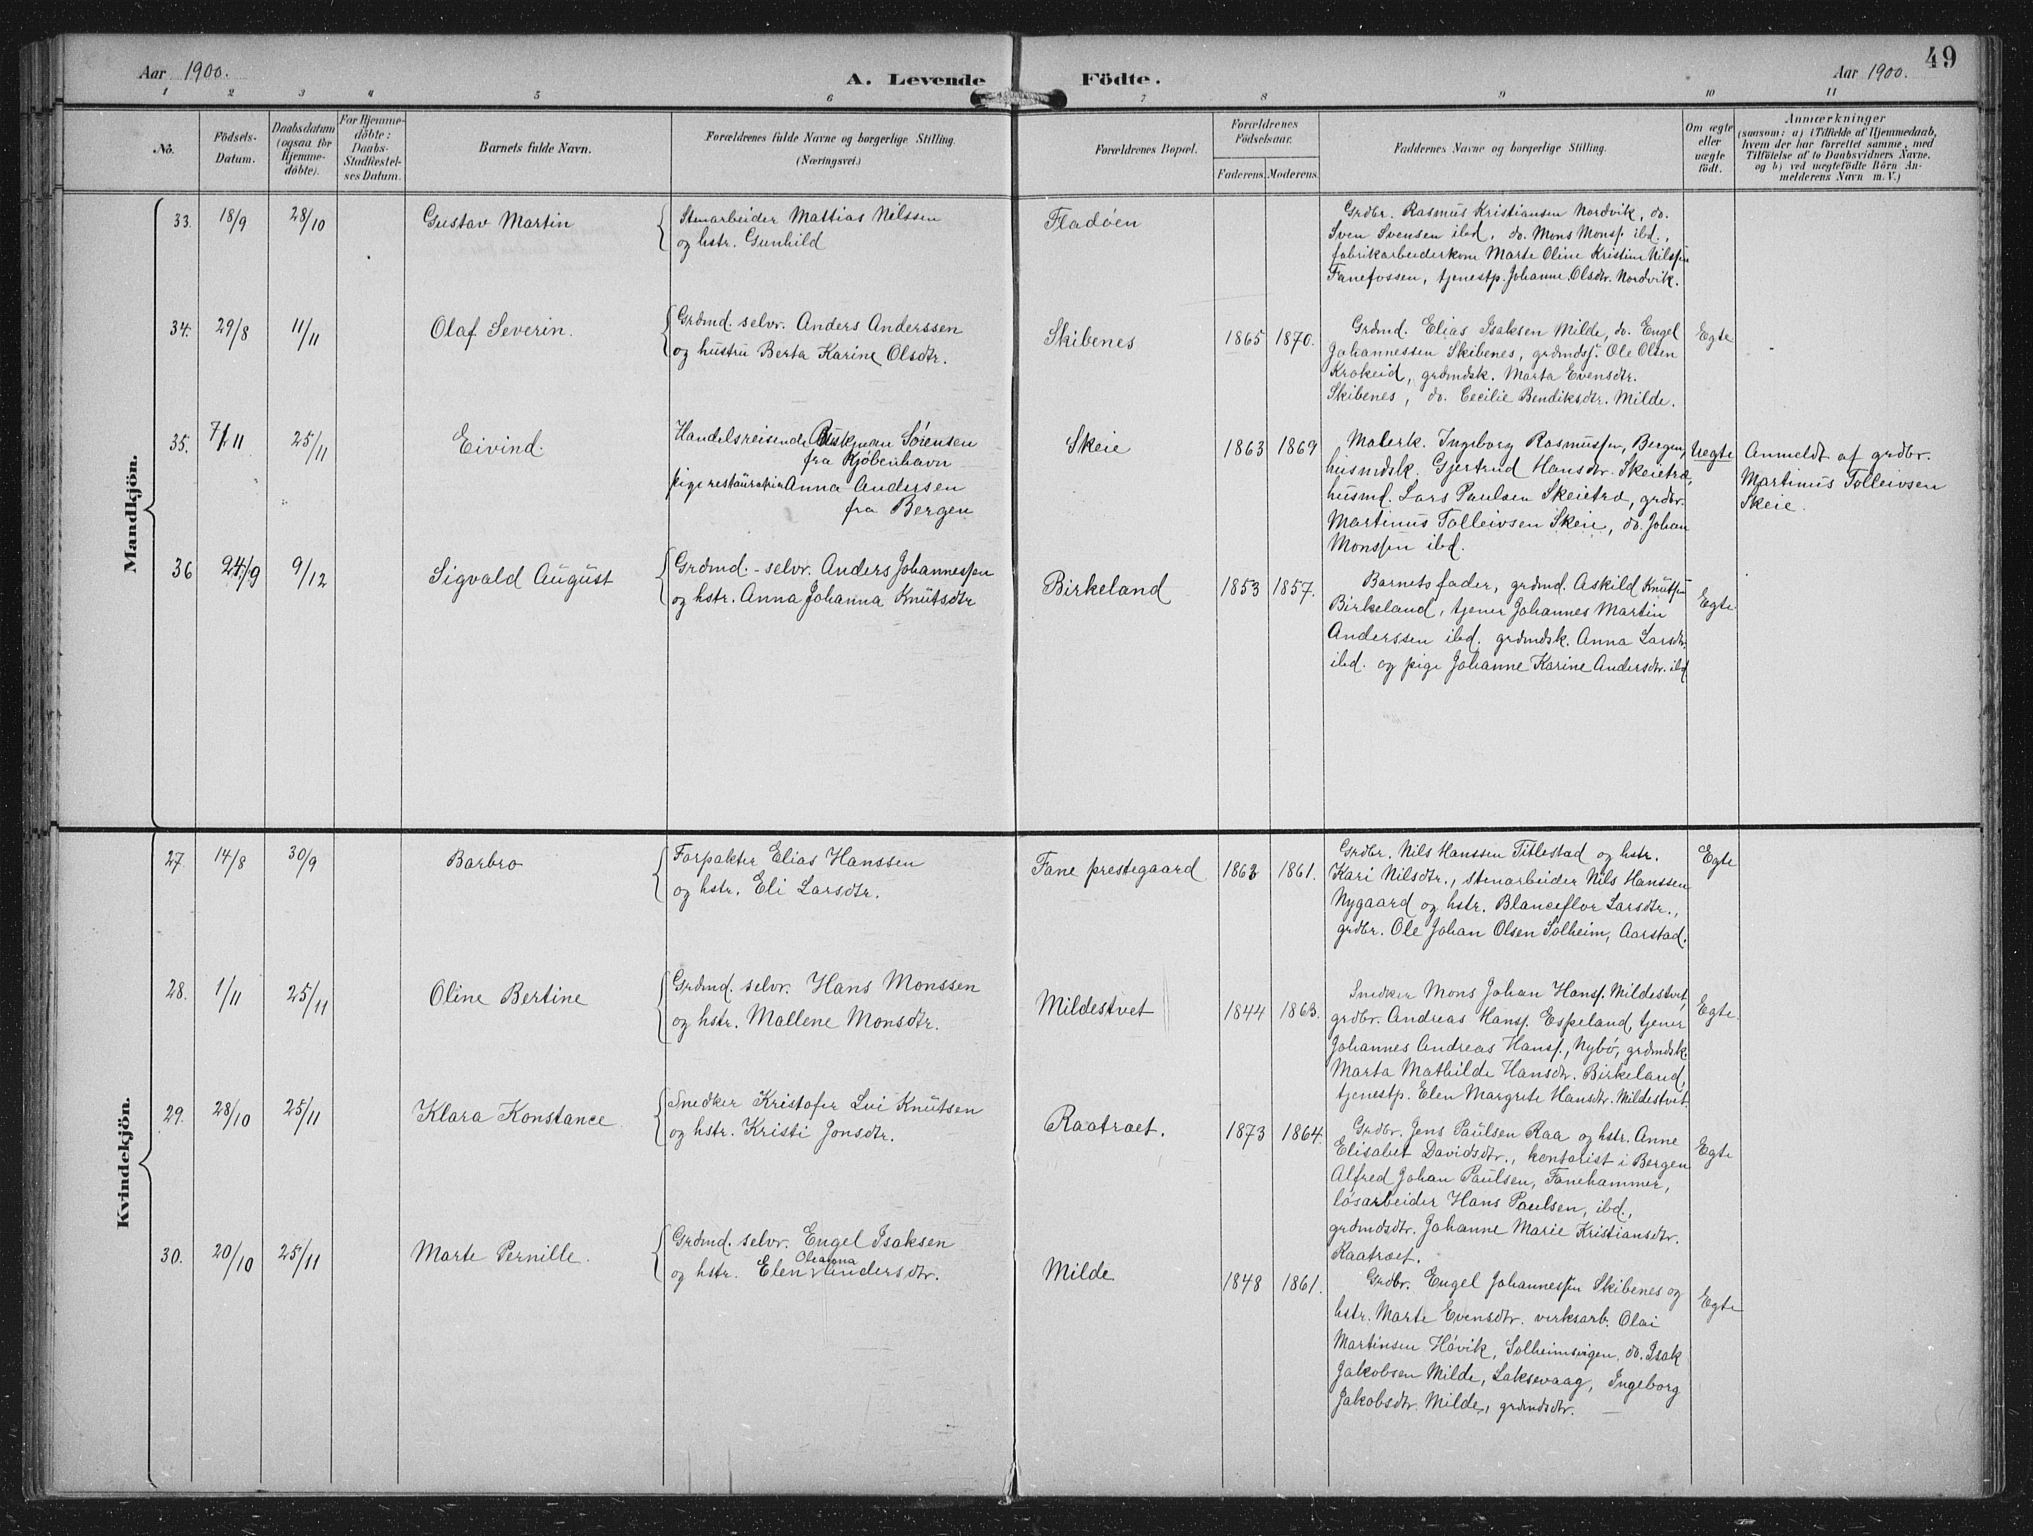 49
Aar 1900.
A. Levende Födte.
Aar 1900.
1 2 3 4 5 6 7 8 9 10 11
No.
Födsels-
Datum.
Daabsdatum
(ogsaa for
Hjemme-
döbte).
For Hjemme-
döbte:
Daabs-
Stadfæstel-
ses Datum.
Barnets fulde Navn.
Forældrenes fulde Navne og borgerlige Stilling.
(Næringsvei.)
Forældrenes Bopæl.
Forældrenes
Födselsaar.
Faderens. Moderens.
Faddernes Navne og borgerlige Stilling.
Om ægte
eller
uægte
födt.
Anmærkninger
(saasom: a) i Tilfælde af Hjemmedaab,
hvem der har forrettet samme, med
Tilföielse af to Daabsvidners Navne.
og b) ved uægtefödte Börn An-
melderens Navn m. V.)
Mandkjön.
33. 18/9 28/10 Gustav Martin
Stenarbeider Mattias Nilssen
og hstr. Gunhild
Fladøen
Grdbr. Rasmus Kristiansen Nordvik, do.
Sven Svensen ibd. do. Mons Monsf. ibd.,
fabrikarbeiderkone Marte Oline Kristine Nilsf
Fanefossen, tjenestp. Johanne Olsdtr. Nordvik.
34. 29/8 11/11 Olaf Severin.
Grdmd. selvr. Anders Anderssen
og hustru Berta Karine Olsdtr.
Skibenes
1865 1870.
Grdmd. Elias Isaksen Milde, do. Engel
Johannessen Skibenes, grdmdsf. Ole Olsen
Krokeid, grdmdsk. Marta Evensdtr.
Skibenes, do. Cecilie Bendiksdtr. Milde.
Egte
35. 7/11 25/11 Eivind.
Handelsreisende Sörensen
fra Kjøbenhavn
pige Anna Andersen
fra Bergen
Skeie
1863 1869
Malerk. Ingeborg Rasmussen, Bergen,
husmdsk. Gjertrud Hansdtr. Skeietræ,
husmd. Lars Paulsen Skeietræ, grdbr.
Martinus Tolleivsen Skeie, do. Johan
Monssen ibd.
Uegte
Anmeldt af grdbr.
Martinus Tolleivsen
Skeie.
36 24/9 9/12 Sigvald August
Grdmd. - selvr. Anders Johannessen
og hstr. Anna Johanna Knutsdtr
Birkeland
1853 1857.
Barnets fader, grdmd. Askild Knutsen
Birkeland, tjener Johannes Martin
Anderssen ibd. grdmdsk. Anna Larsdtr.
ibd. og pige Johanne Karine Andersdtr. ibd
Egte
Kvindekjön.
27. 14/8 30/9 Barbro
Forpakter Elias Hanssen
og hstr. Eli Larsdtr.
Fane prestegaard
1862 1861.
Grdbr. Nils Hanssen Titlestad og hstr.
Kari Nilsdtr., stenarbeider Nils Hanssen
Nygaard og hstr. Blanceflor Larsdtr.,
grdbr. Ole Johan Olsen Solheim, Aarstad.
Egte
28. 1/11 25/11 Oline Bertine
Grdmd. selvr. Hans Monssen
og hstr. Mallene Monsdtr.
Mildestvet
1844 1863.
Snedker Mons Johan Hansf. Mildestvet,
grdbr. Andreas Hansf. Espeland, tjener
Johannes Andreas Hansf., Nybø, grdmdsk.
Marta Mathilde Hansdtr. Birkeland,
tjenestp. Elen Margrete Hansdtr. Mildestvet.
Egte
29. 28/10 25/11 Klara Konstance
Snedker Kristofer Lui Knutsen
og hstr. Kristi Jonsdtr.
Raatræt.
1873 1864.
Grdbr. Jens Paulsen Raa og hstr. Anne
Elisabet Davidsdtr., kontorist i Bergen
Alfred Johan Paulsen, Fanehammer,
løsarbeider Hans Paulsen, ibd.,
grdmdsdtr. Johanne Marie Kristiansdtr.
Raatræt.
Egte
30. 20/10 25/11 Marte Pernille.
Grdmd. selvr. Engel Isaksen
Oleanna
og hstr. Elen Andersdtr.
Milde
1848 1861.
Grdbr. Engel Johannessen Skibenes og
hstr. Marte Evensdtr. verksarb. Olai
Martinsen Høvik, Solheimsvigen, do. Isak
Jakobsen Milde, Laksevaag, Ingeborg
Jakobsdtr. Milde, grdmdsdtr.
Egte